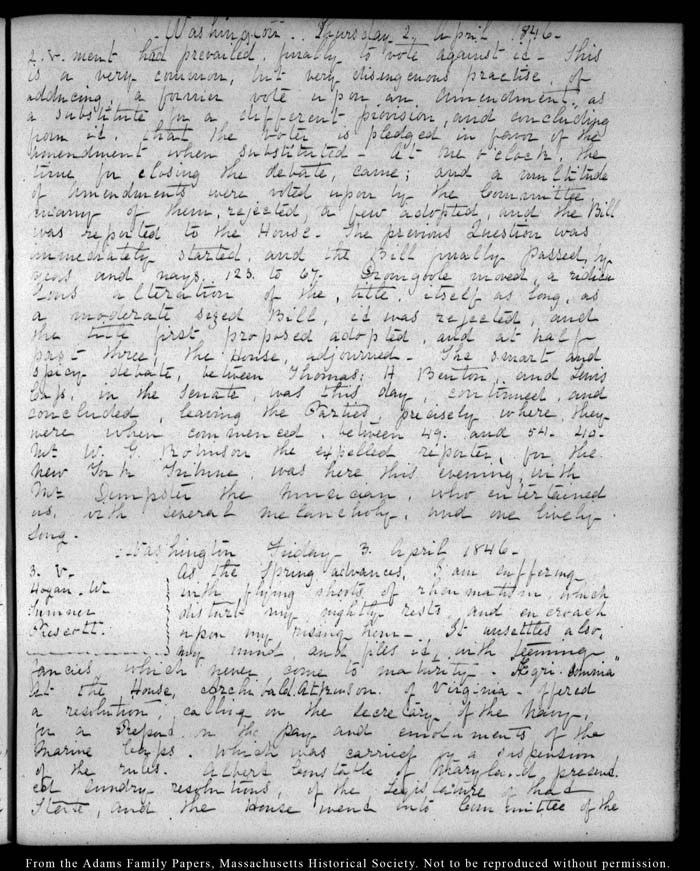 Washington. Thursday 2. April 1846.
2. V. ment had prevailed, finally to vote against it. This
is a very common, but very disingenuous practise, of
adducing, a former vote upon an amendment, as
a substitute for a different provision, and concluding
from it, that the voter is pledged in favor of the
amendment when substituted. At one o'clock, the
time for closing the debate, came; and a multitude
of amendments were voted upon by the Committee
many of them, rejected, a few adopted, and the Bill
was reported to the House. The previous Question was
immediately started, and the Bill finally passed, by
yeas and nays, 123. to 67. Dromgoole moved, a ridicu
lous alteration of the, title, itself as long, as
a moderate sized Bill, it was rejected, and
the title first proposed adopted, and at half
past three, the House, adjourned. The smart and
spicy debate, between Thomas, H. Benton, and Lewis
Cass, in the Senate, was this day, continued, and
concluded, leaving the Parties, precisely where they
were when commenced, between 49. and 54-40.
Mr W. E. Robinson the expelled reporter, for the
New York Tribune, was here this evening, with
Mr Dempster the Musician, who entertained
us, with several melancholy, and one lively
song.
Washington Friday 3. April 1846.
3. V. As the Spring advances, I am suffering
Hogan. W. with flying shoots of rheumatism, which
Sumner disturb my nightly rests, and encroach
Prescott. upon my rising hour. It unsettles also,
my mind, and fills it, with teeming
fancies, which never come to maturity. Aegri somnia
At the House, Archibald Atkinson of Virginia offered
a resolution, calling on the Secretary, of the Navy,
for a Report on the pay and emoluments of the
Marine Corps. Which was carried by a suspension
of the rules. Albert Constable of Maryland present
ed sundry resolutions, of the Legislature of that
State, and the House went into Committee of the
From the Adams Family Papers, Massachusetts Historical Society. Not to be reproduced without permission.